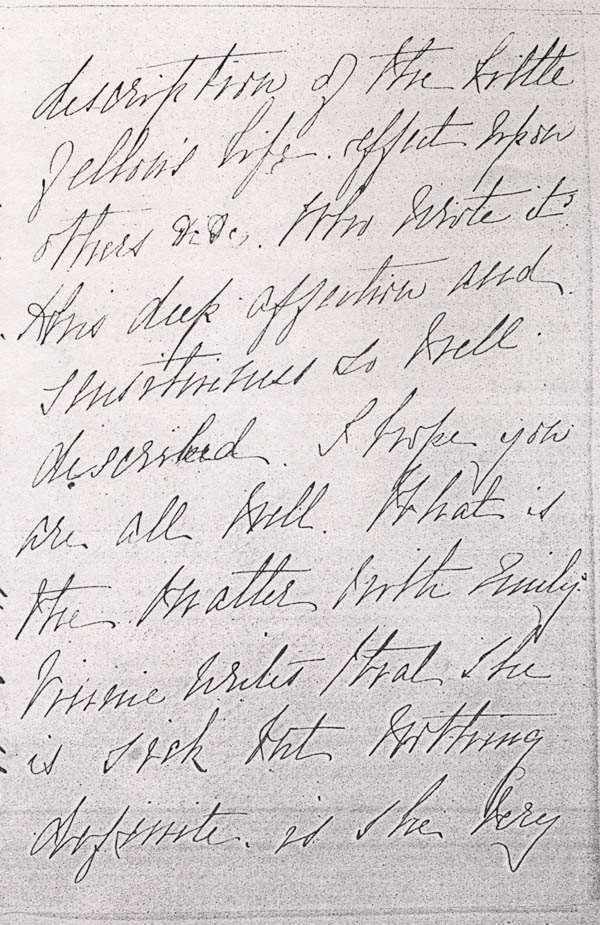 description of the little
fellow's life. effect upon
others &c &c. Who wrote it?
His deep affection and
sensitiveness so well
described. I hope you
are all well. What is
the matter with Emily.
Vinnie writes that she
is sick but nothing
definite. is she very